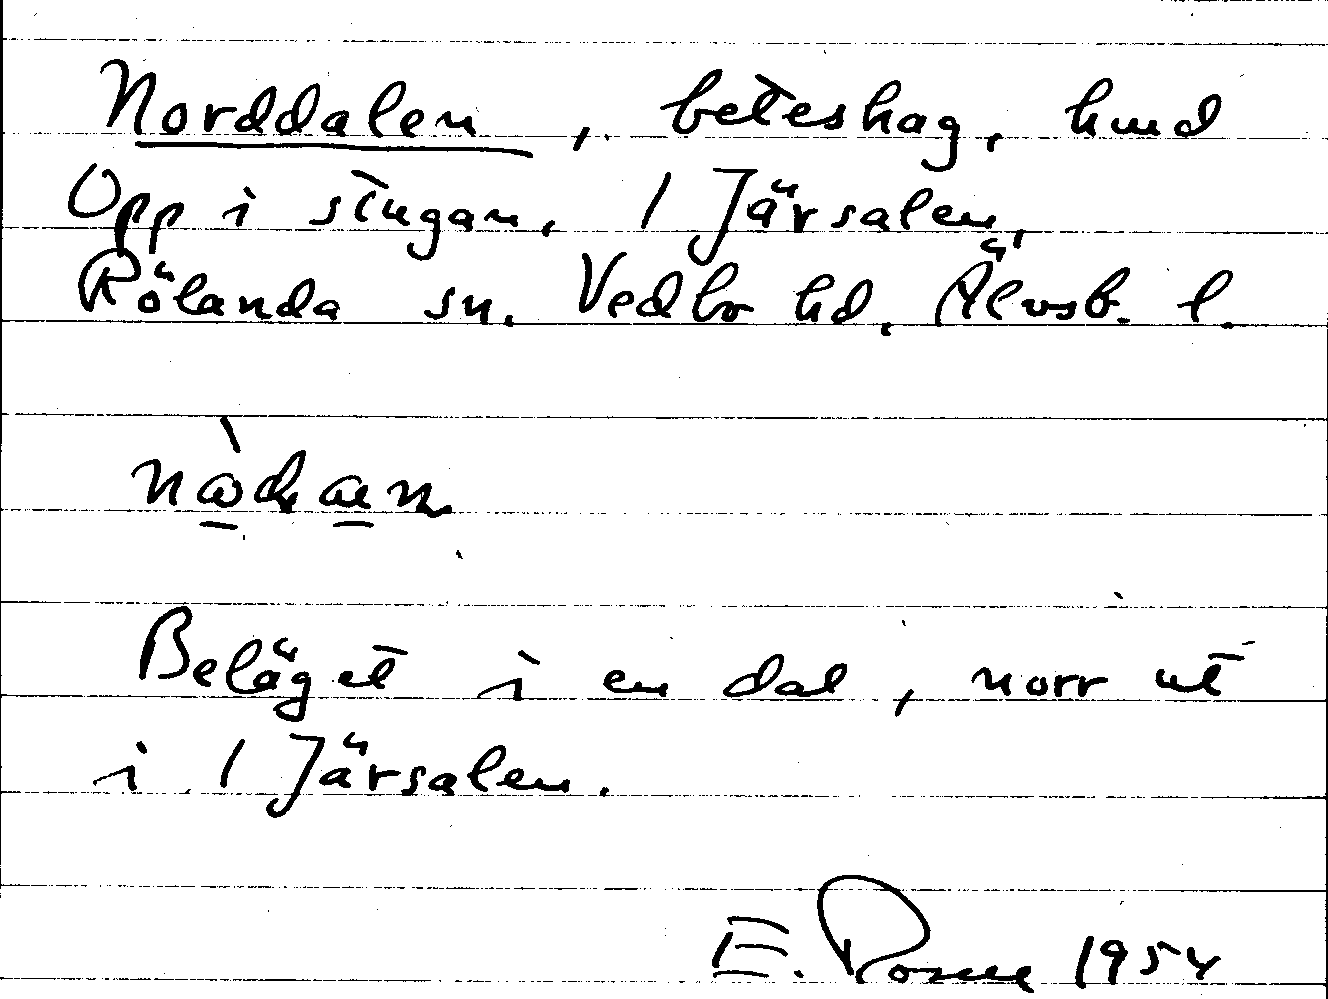 Norddalen, beteshag, hmd
Opp i stugan, 1 Järsalen,
Rölanda sn. Vedbo hd. Älvsb. l.
Beläget i en dal, norr ut
i 1 Järsalen.
E. 1954